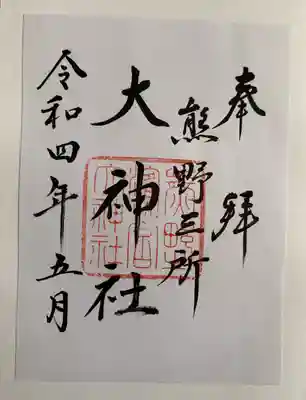 奉拝
熊野三所
大神社
令和四年五月